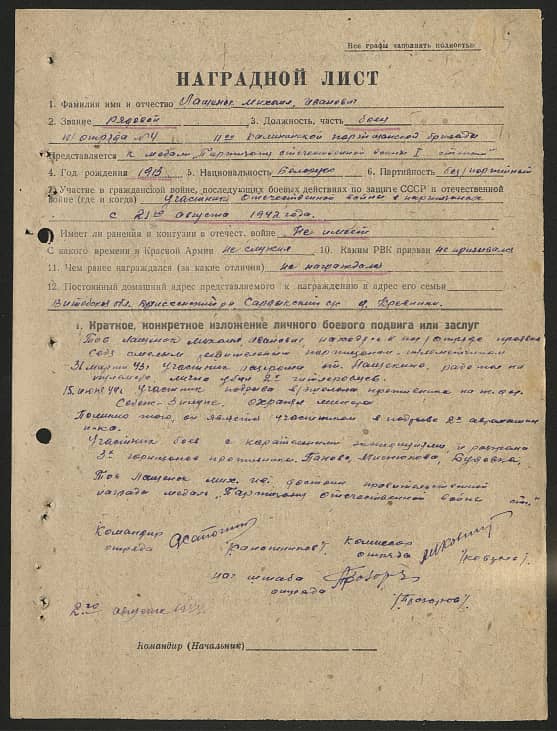 Все графы заполнять полностью
НАГРАДНОЙ ЛИСТ
1. Фамилия имя и отчество Лашенок Михаил Иванович
2. Звание рядовой 3. Должность, часть боец
отряда №4 Калининской партизанской бригады
Представляется к медали "Партизану отечественной войны I степени"
4. Год рождения 1913 5. Национальность Белорус 6. Партийность беспартийный
7. Участие в гражданской войне, последующих боевых действиях по защите СССР и отечественной
войне (где и когда) участник Отечественной войны в партизанах
с 21го августа 1942 года.
Имеет ли ранения и контузии в отечест. войне Не имеет
С какого времени в Красной Армии не служил 10. Каким РВК призван не призывался
11. Чем ранее награждался (за какие отличия) не награждался
12. Постоянный домашний адрес представляемого к награждению и адрес его семьи
Витебская обл. д.
I. Краткое, конкретное изложение личного боевого подвига или заслуг
Тов Лашенок Михаил Иванович находясь в партотряде проявил
себя смелым партизаном-пулеметчиком
31 марта 43г. Участник разгрома работая на
пулемете лично убил 2х гитлеровцев.
15 июня 44г. Участник подрыва противника на ж. дор.
Помимо того, он является участником в подрыве 2х автомашин
пр-ка.
Участник боев с карательными экспедициями и разгрома
3х гарнизонов противника.
Тов Лашенок Мих. Ив. достоин правительственной
награды медаль "Партизану отечественной войны ст."
Командир
отряда
Комиссар
отряда
нач штаба
отряда
2го августа
Командир (Начальник)